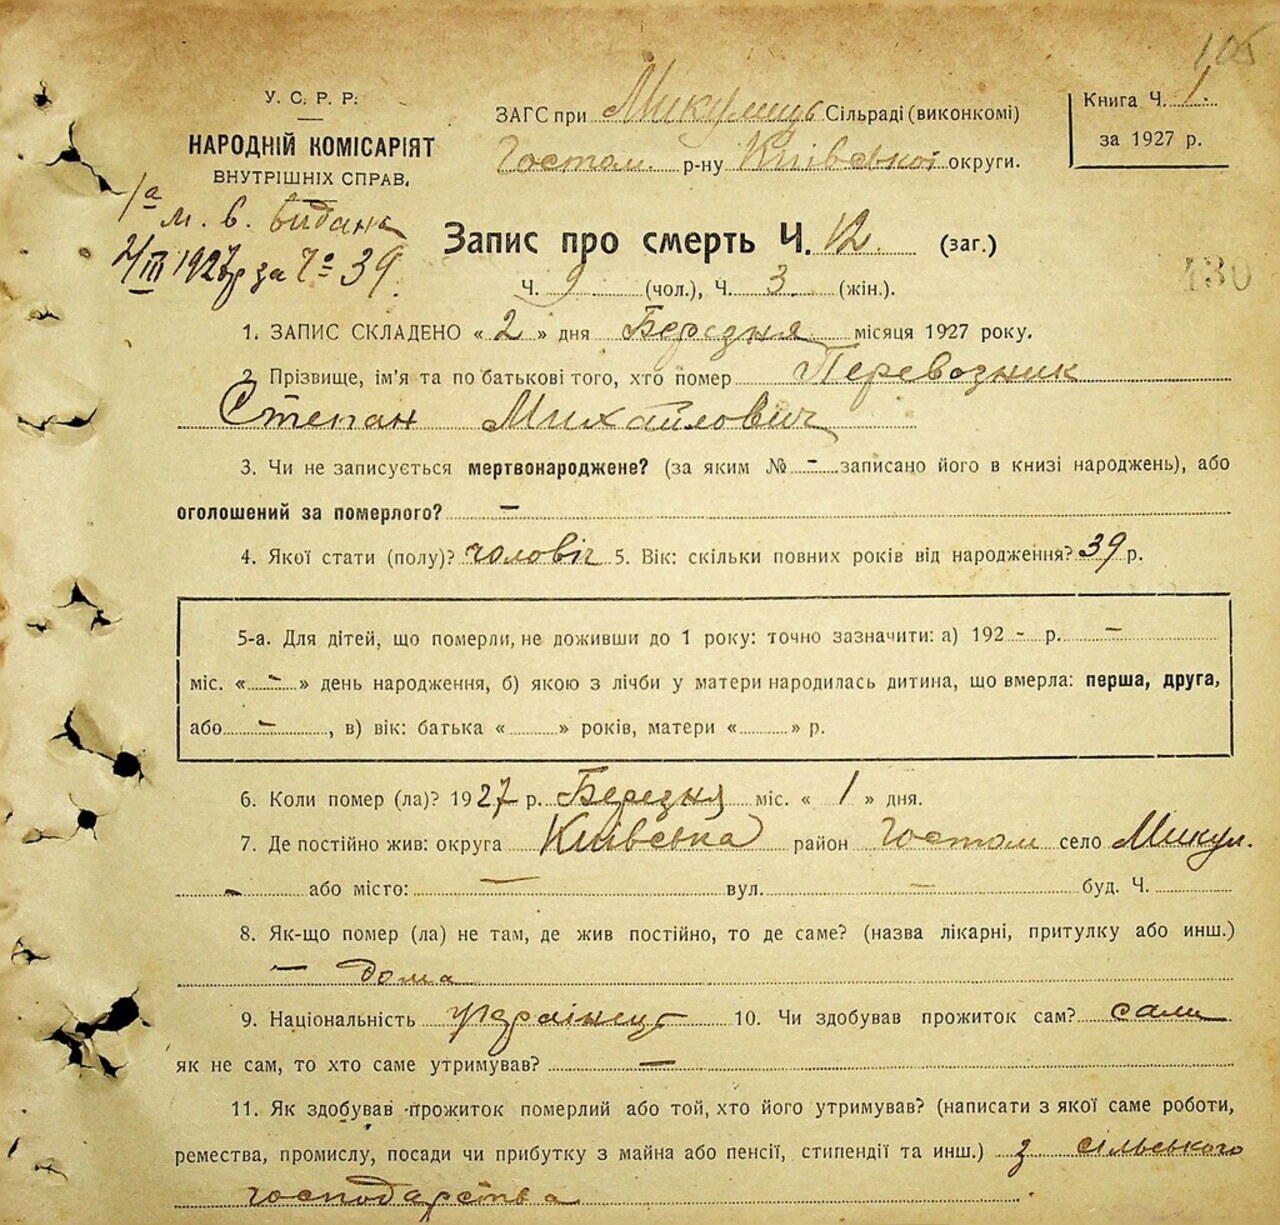 105
У. С. Р. Р.
НАРОДНІЙ КОМІСАРІЯТ
ВНУТРІШНІХ СПРАВ.
ЗАГС при Микулиць Сільраді (виконкомі)
Гостом. р-ну Київської округи.
Книга Ч. 1.
за 1927 р.
м. в. видана
1927 р за 39
Запис про смерть Ч. 12. (заг.)
430
Ч. 9 (чол.), Ч. 3 (жін.).
1. ЗАПИС СКЛАДЕНО « 2 » дня Березня місяця 1927 року.
2. Прізвище, ім'я та по батькові того, хто помер Перевозник
Степан Михайлович
3. Чи не записується мертвонароджене? (за яким № - записано його в книзі народжень), або
оголошений за померлого? —
4. Якої стати (полу)? чоловіч 5. Вік: скільки повних років від народження? 39 р.
5-а. Для дітей, що померли, не доживши до 1 року: точно зазначити: а) 192 - р. —
міс. « - » день народження, б) якою з лічби у матери народилась дитина, що вмерла: перша, друга,
або —, в) вік: батька « » років, матери « » р.
6. Коли помер (ла)? 1927 р. Березня міс. « 1 » дня.
7. Де постійно жив: округа Київська район Гостом село Микул.
- або місто: — вул. — буд. Ч.
8. Як-що помер (ла) не там, де жив постійно, то де саме? (назва лікарні, притулку або инш.)
— дома
9. Національність Українець 10. Чи здобував прожиток сам? сам
як не сам, то хто саме утримував? —
11. Як здобував прожиток померлий або той, хто його утримував? (написати з якої саме роботи,
ремества, промислу, посади чи прибутку з майна або пенсії, стипендії та инш.) з сільського
господарства